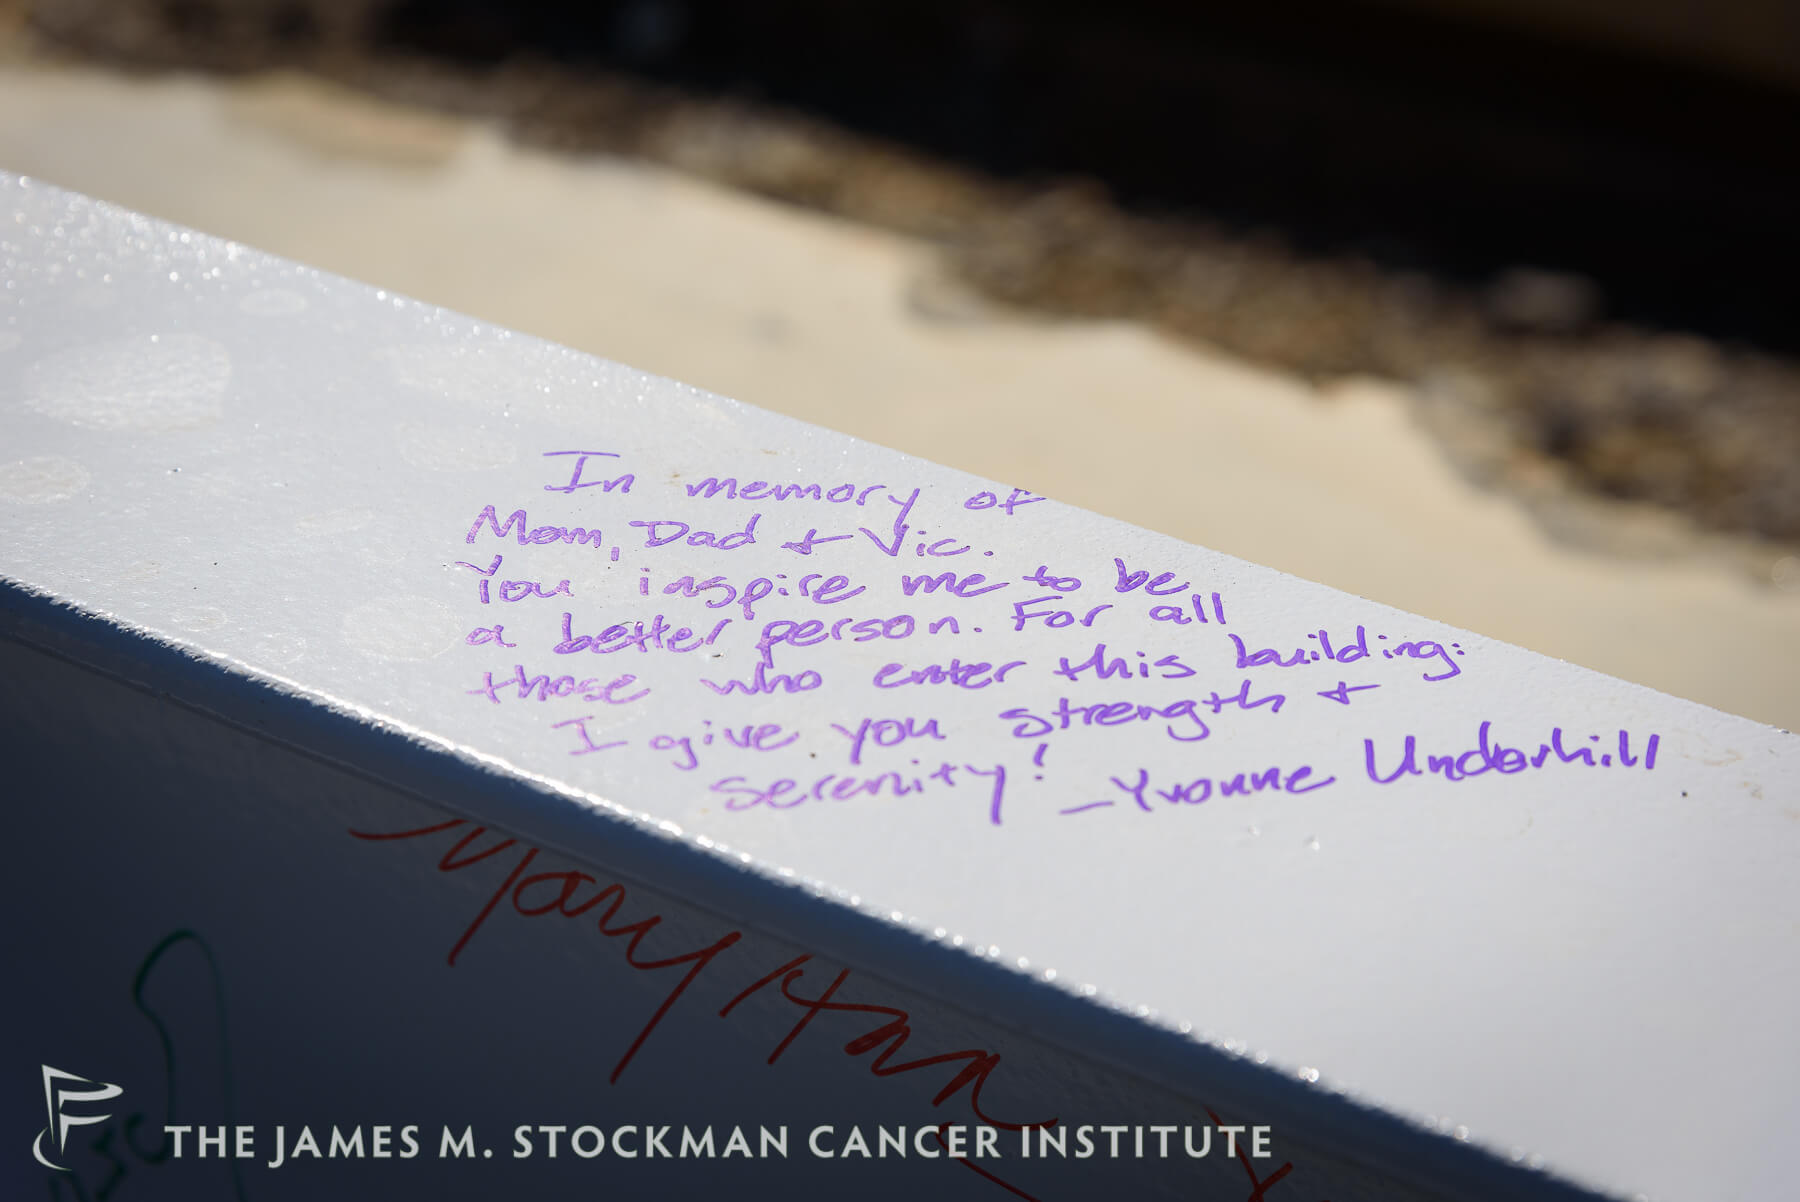 In memory of
Mom, Dad + Vic.
You inspire me to be
a better person. For all
those who enter this building:
I give you strength +
serenity! – Yvonne Underhill
Mary Ann
THE JAMES M. STOCKMAN CANCER INSTITUTE